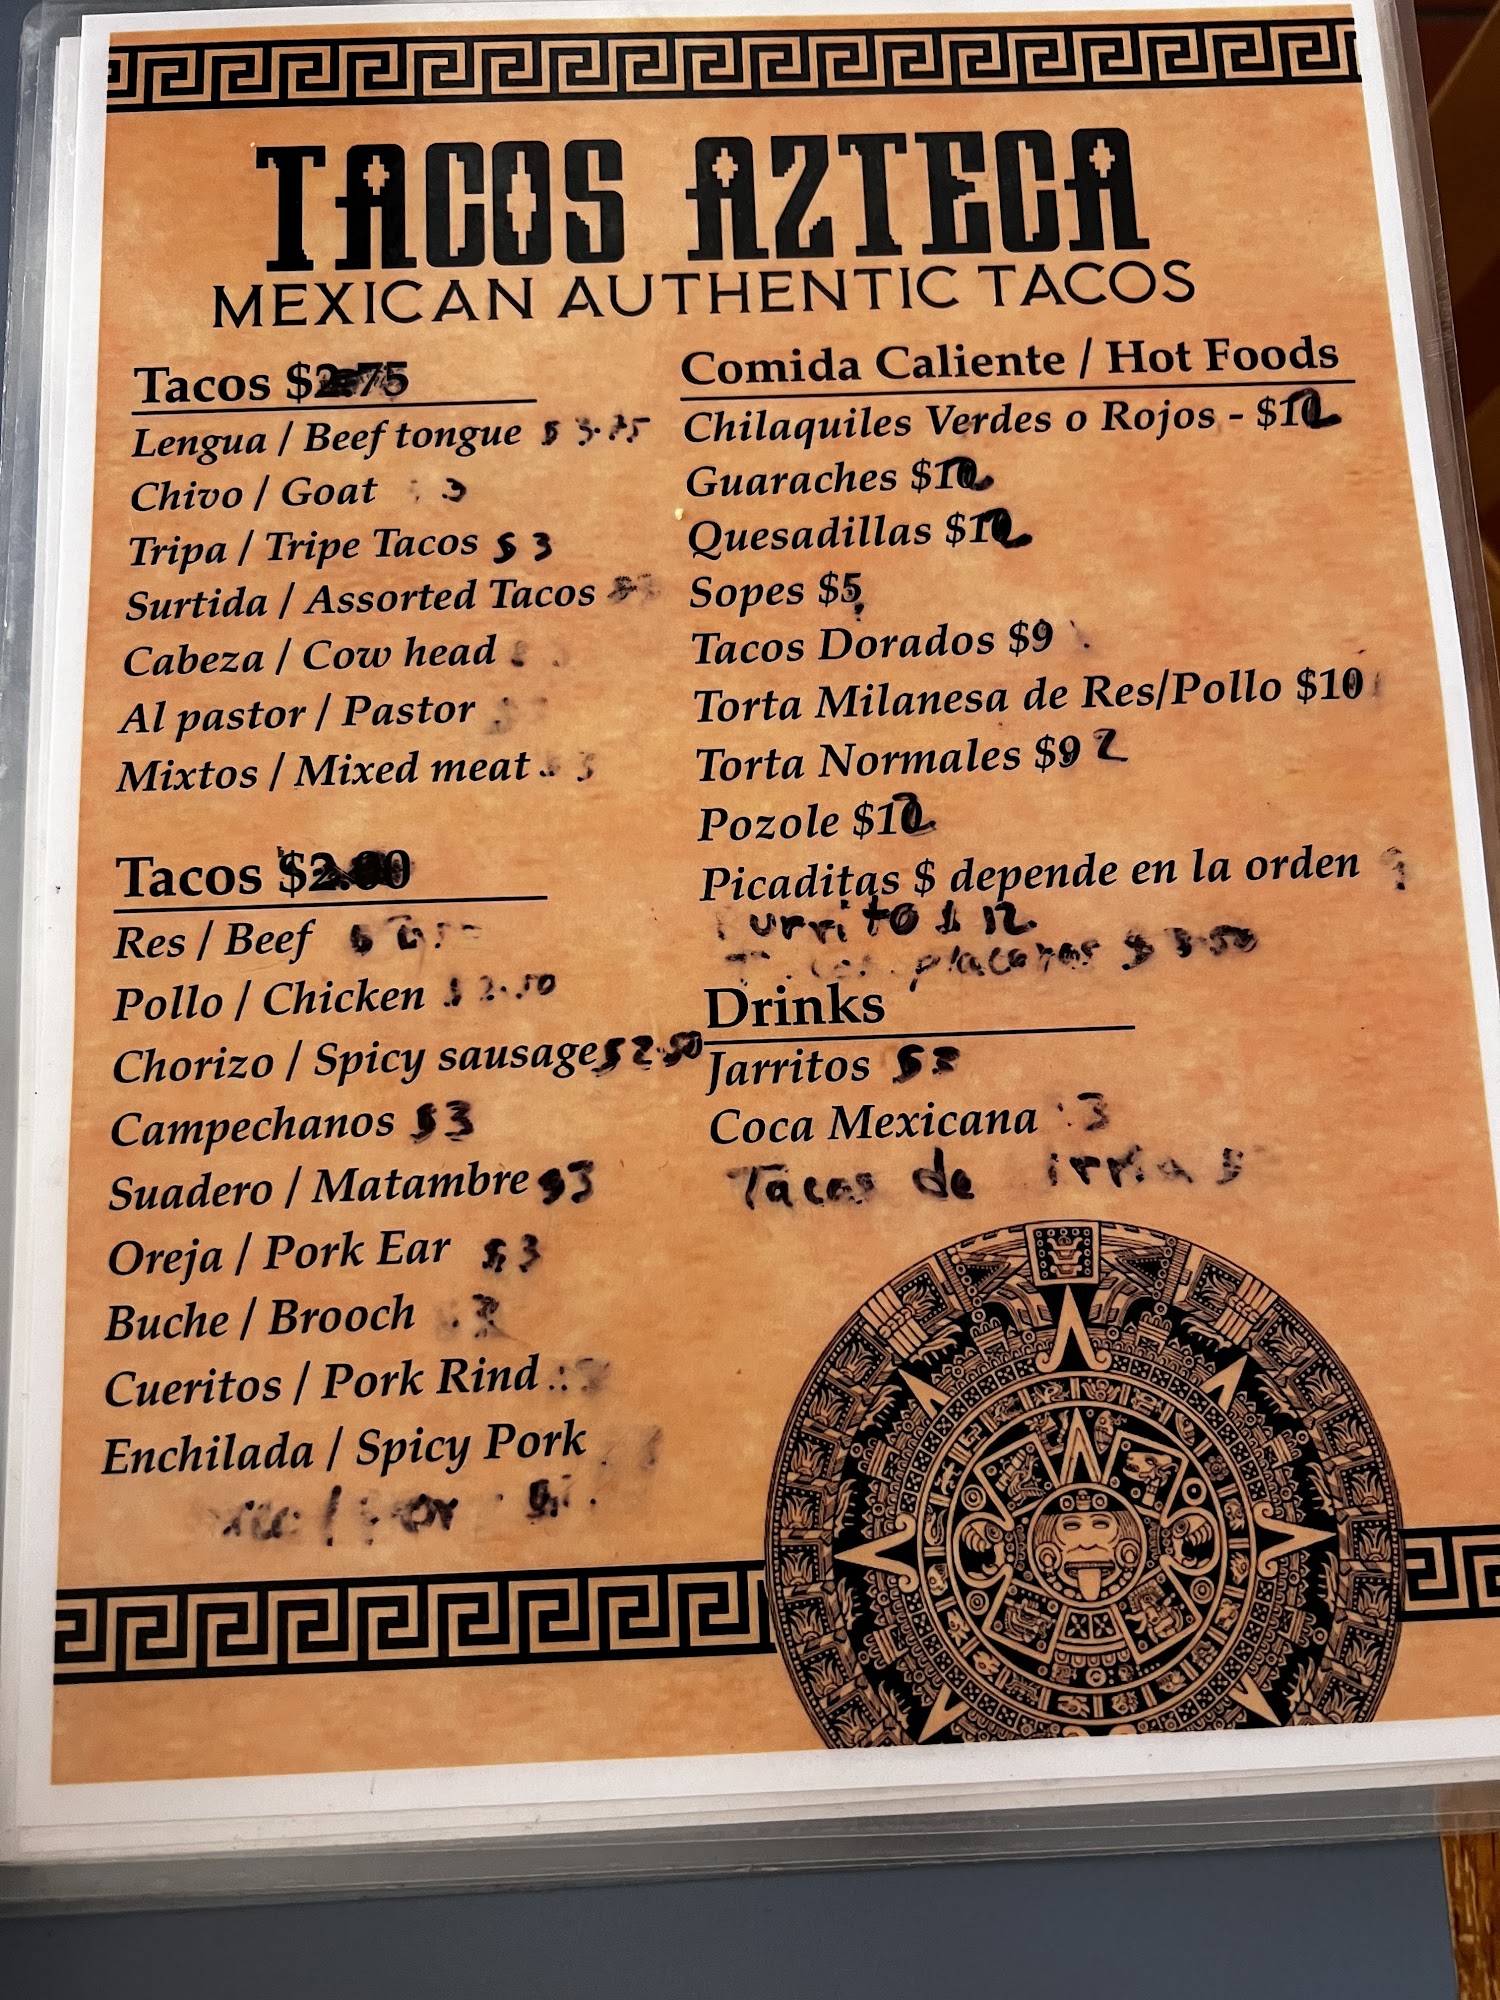 TACOS AZTECA
MEXICAN AUTHENTIC TACOS
Tacos $2.75
Lengua / Beef tongue $ 3.75
Chivo / Goat 3
Tripa / Tripe Tacos $ 3
Surtida / Assorted Tacos
Cabeza / Cow head
Al pastor / Pastor
Mixtos / Mixed meat 3
Tacos $2.00
Res / Beef
Pollo / Chicken $ 2.50
Chorizo / Spicy sausage $2.50
Campechanos $3
Suadero / Matambre $3
Oreja / Pork Ear $3
Buche / Brooch 3
Cueritos / Pork Rind
Enchilada / Spicy Pork
Comida Caliente / Hot Foods
Chilaquiles Verdes o Rojos - $12
Guaraches $12
Quesadillas $12
Sopes $5
Tacos Dorados $9
Torta Milanesa de Res/Pollo $10
Torta Normales $9
Pozole $12
Picaditas $ depende en la orden
$ 12
placeros $ 3.50
Drinks
Jarritos $3
Coca Mexicana 3
Tacos de